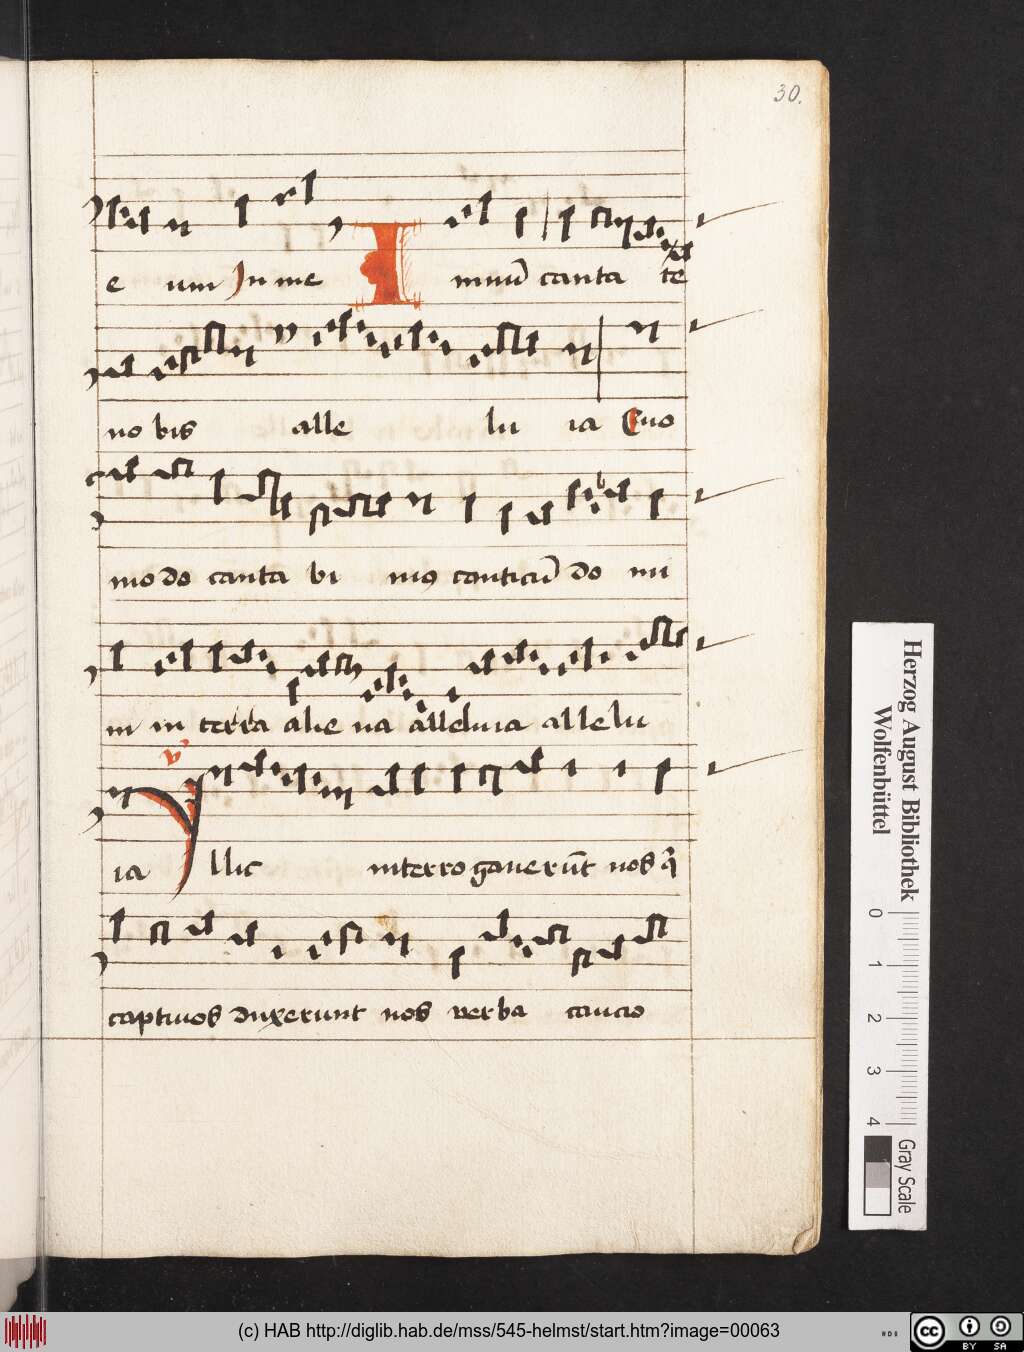 30.
e um In me Imnū canta te
no bis alle lu ia Quo
mo do canta bi mꝰ canticū do mi
ni in terra alie na alleluia allelu
ia Yllic interro gauerūt nos q̄
captiuos duxerunt nos verba cancio
Herzog August Bibliothek
Wolfenbüttel
0 1 2 3 4
Gray Scale
(c) HAB http://diglib.hab.de/mss/545-helmst/start.htm?image=00063
cc BY SA